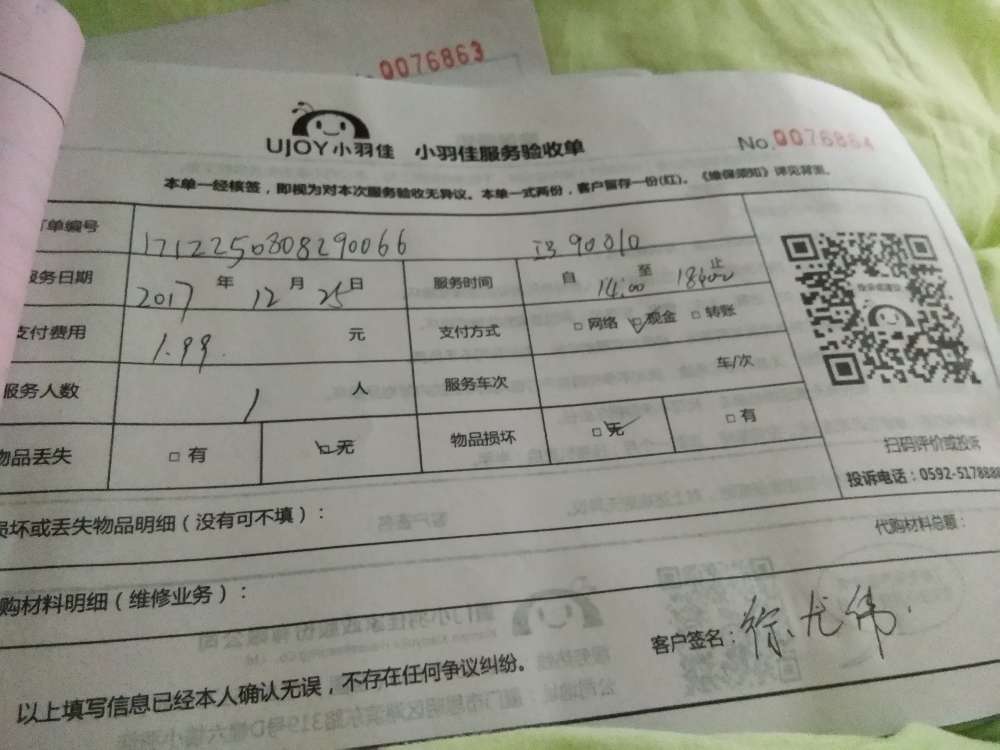 0076863
UJOY小羽佳 小羽佳服务验收单
No.0076864
本单一经核签，即视为对本次服务验收无异议。本单一式两份，客户留存一份(红)。《维保须知》详见背面。
单编号 1712250808290066
务日期 2017 年 12 月 25 日 服务时间 自 14:00 至 18:00 止
支付费用 1.99. 元 支付方式 □ 网络 ☑ 现金 □ 转账
服务人数 1 人 服务车次 车/次
物品丢失 □ 有 ☑ 无 物品损坏 ☑ 无 □ 有
扫码评价或投诉
投诉电话：0592-5178888
损坏或丢失物品明细（没有可不填）：
代购材料总额：
购材料明细（维修业务）：
客户签名：徐尤伟
以上填写信息已经本人确认无误，不存在任何争议纠纷。